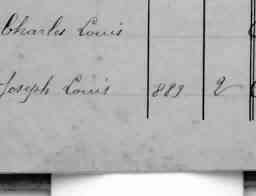 Charles Louis
Joseph Louis 889 2